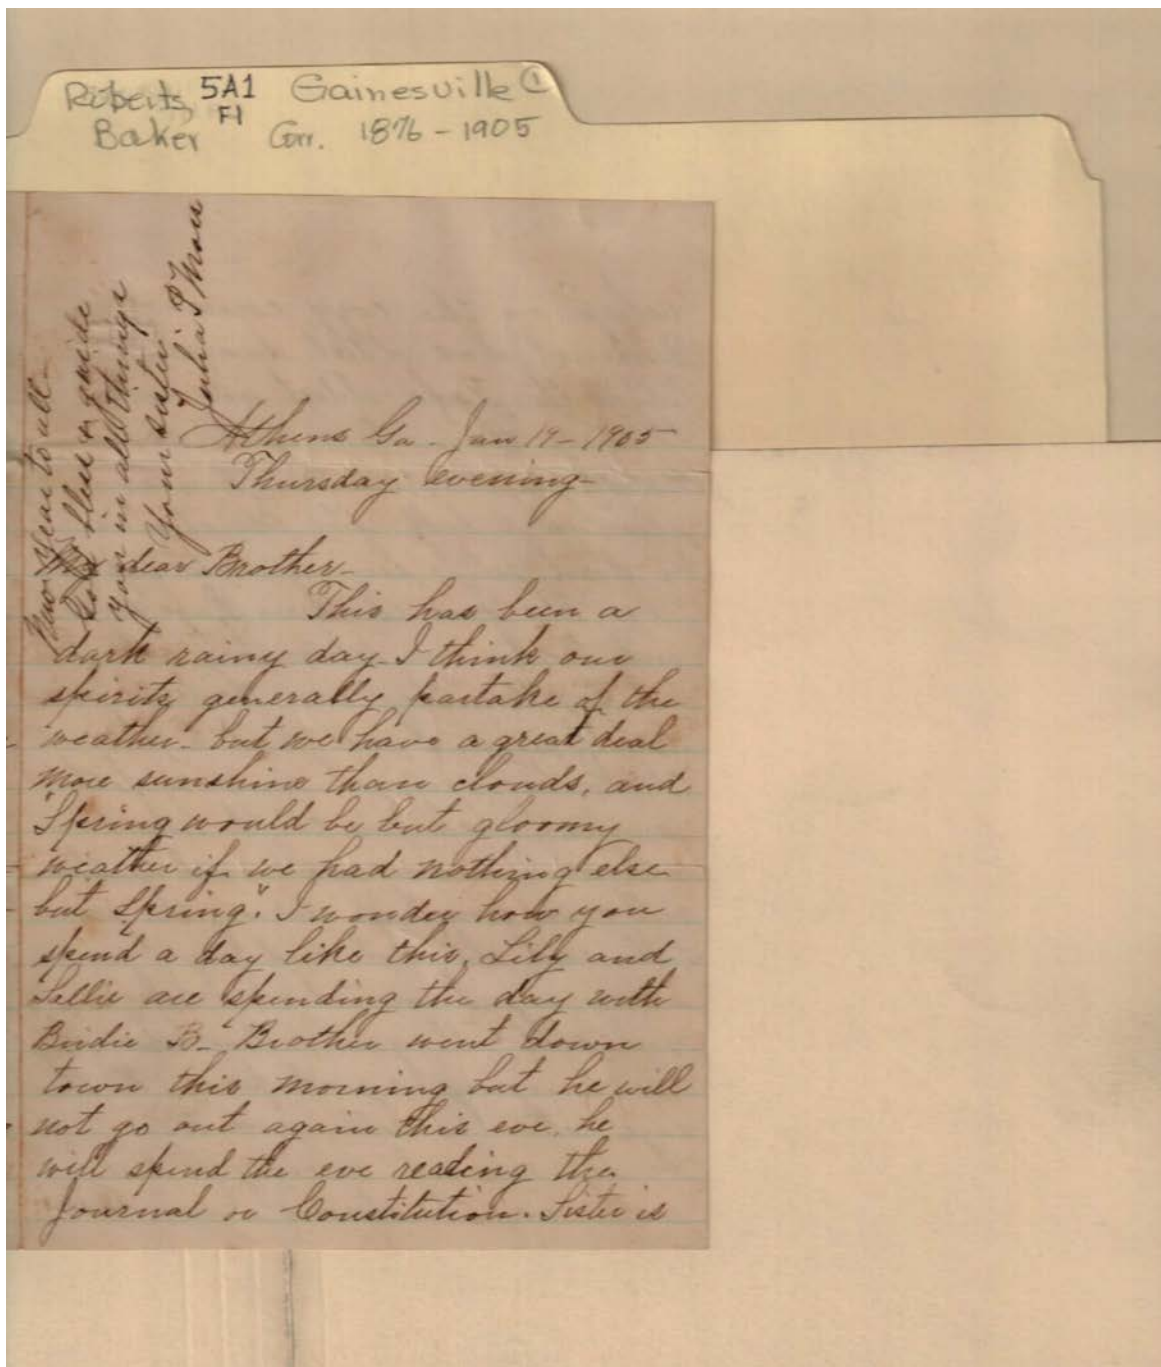 Roberts, 5A1 Gainesville
Baker F1 Corr. 1876-1905
New year to all-
God bless & guide
you in all things
Your sister
Julia P
Athens Ga. Jan 19-1905
Thursday evening-
My dear Brother-
This has been a
dark rainy day. I think our
spirits generally partake of the
weather- but we have a great deal
more sunshine than clouds, and
"Spring would be but gloomy
weather if we had nothing else
but Spring". I wonder how you
spend a day like this, Lily and
Sallie are spending the day with
Birdie B- Brother went down
town this morning but he will
not go out again this eve, he
will spend the eve reading the
Journal or Constitution. Sister is